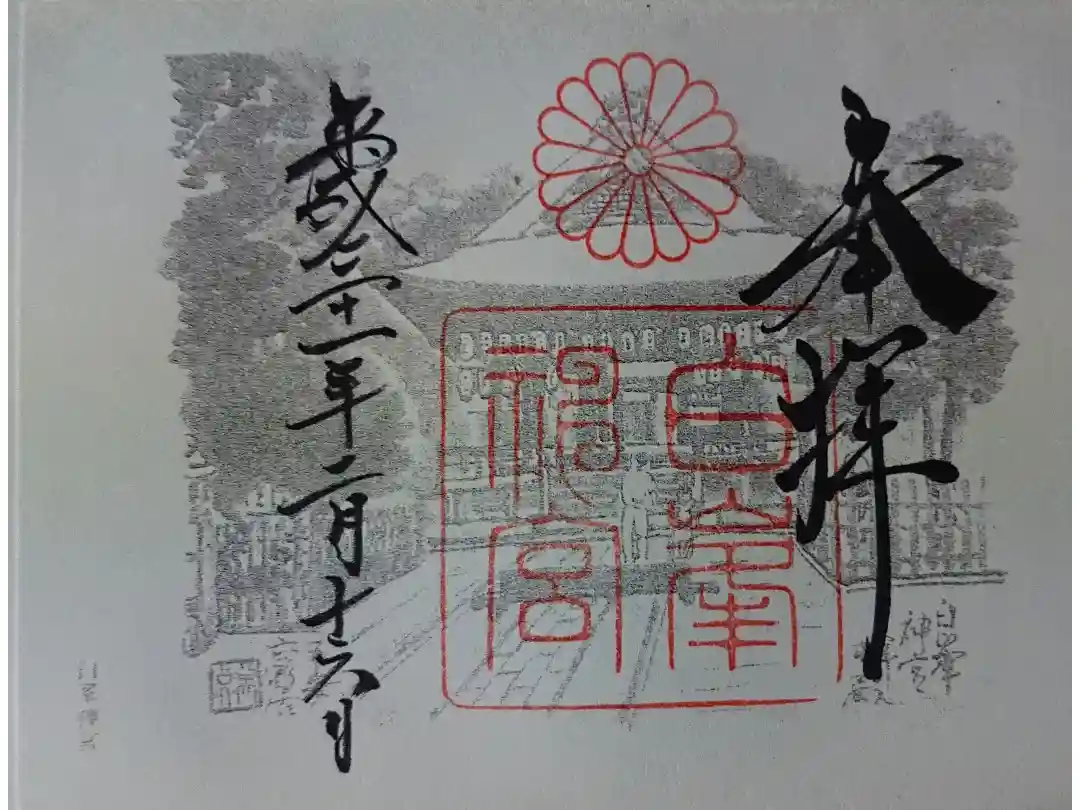 奉拝
白峯
神宮
平成二十一年二月十六日
白峯
神宮